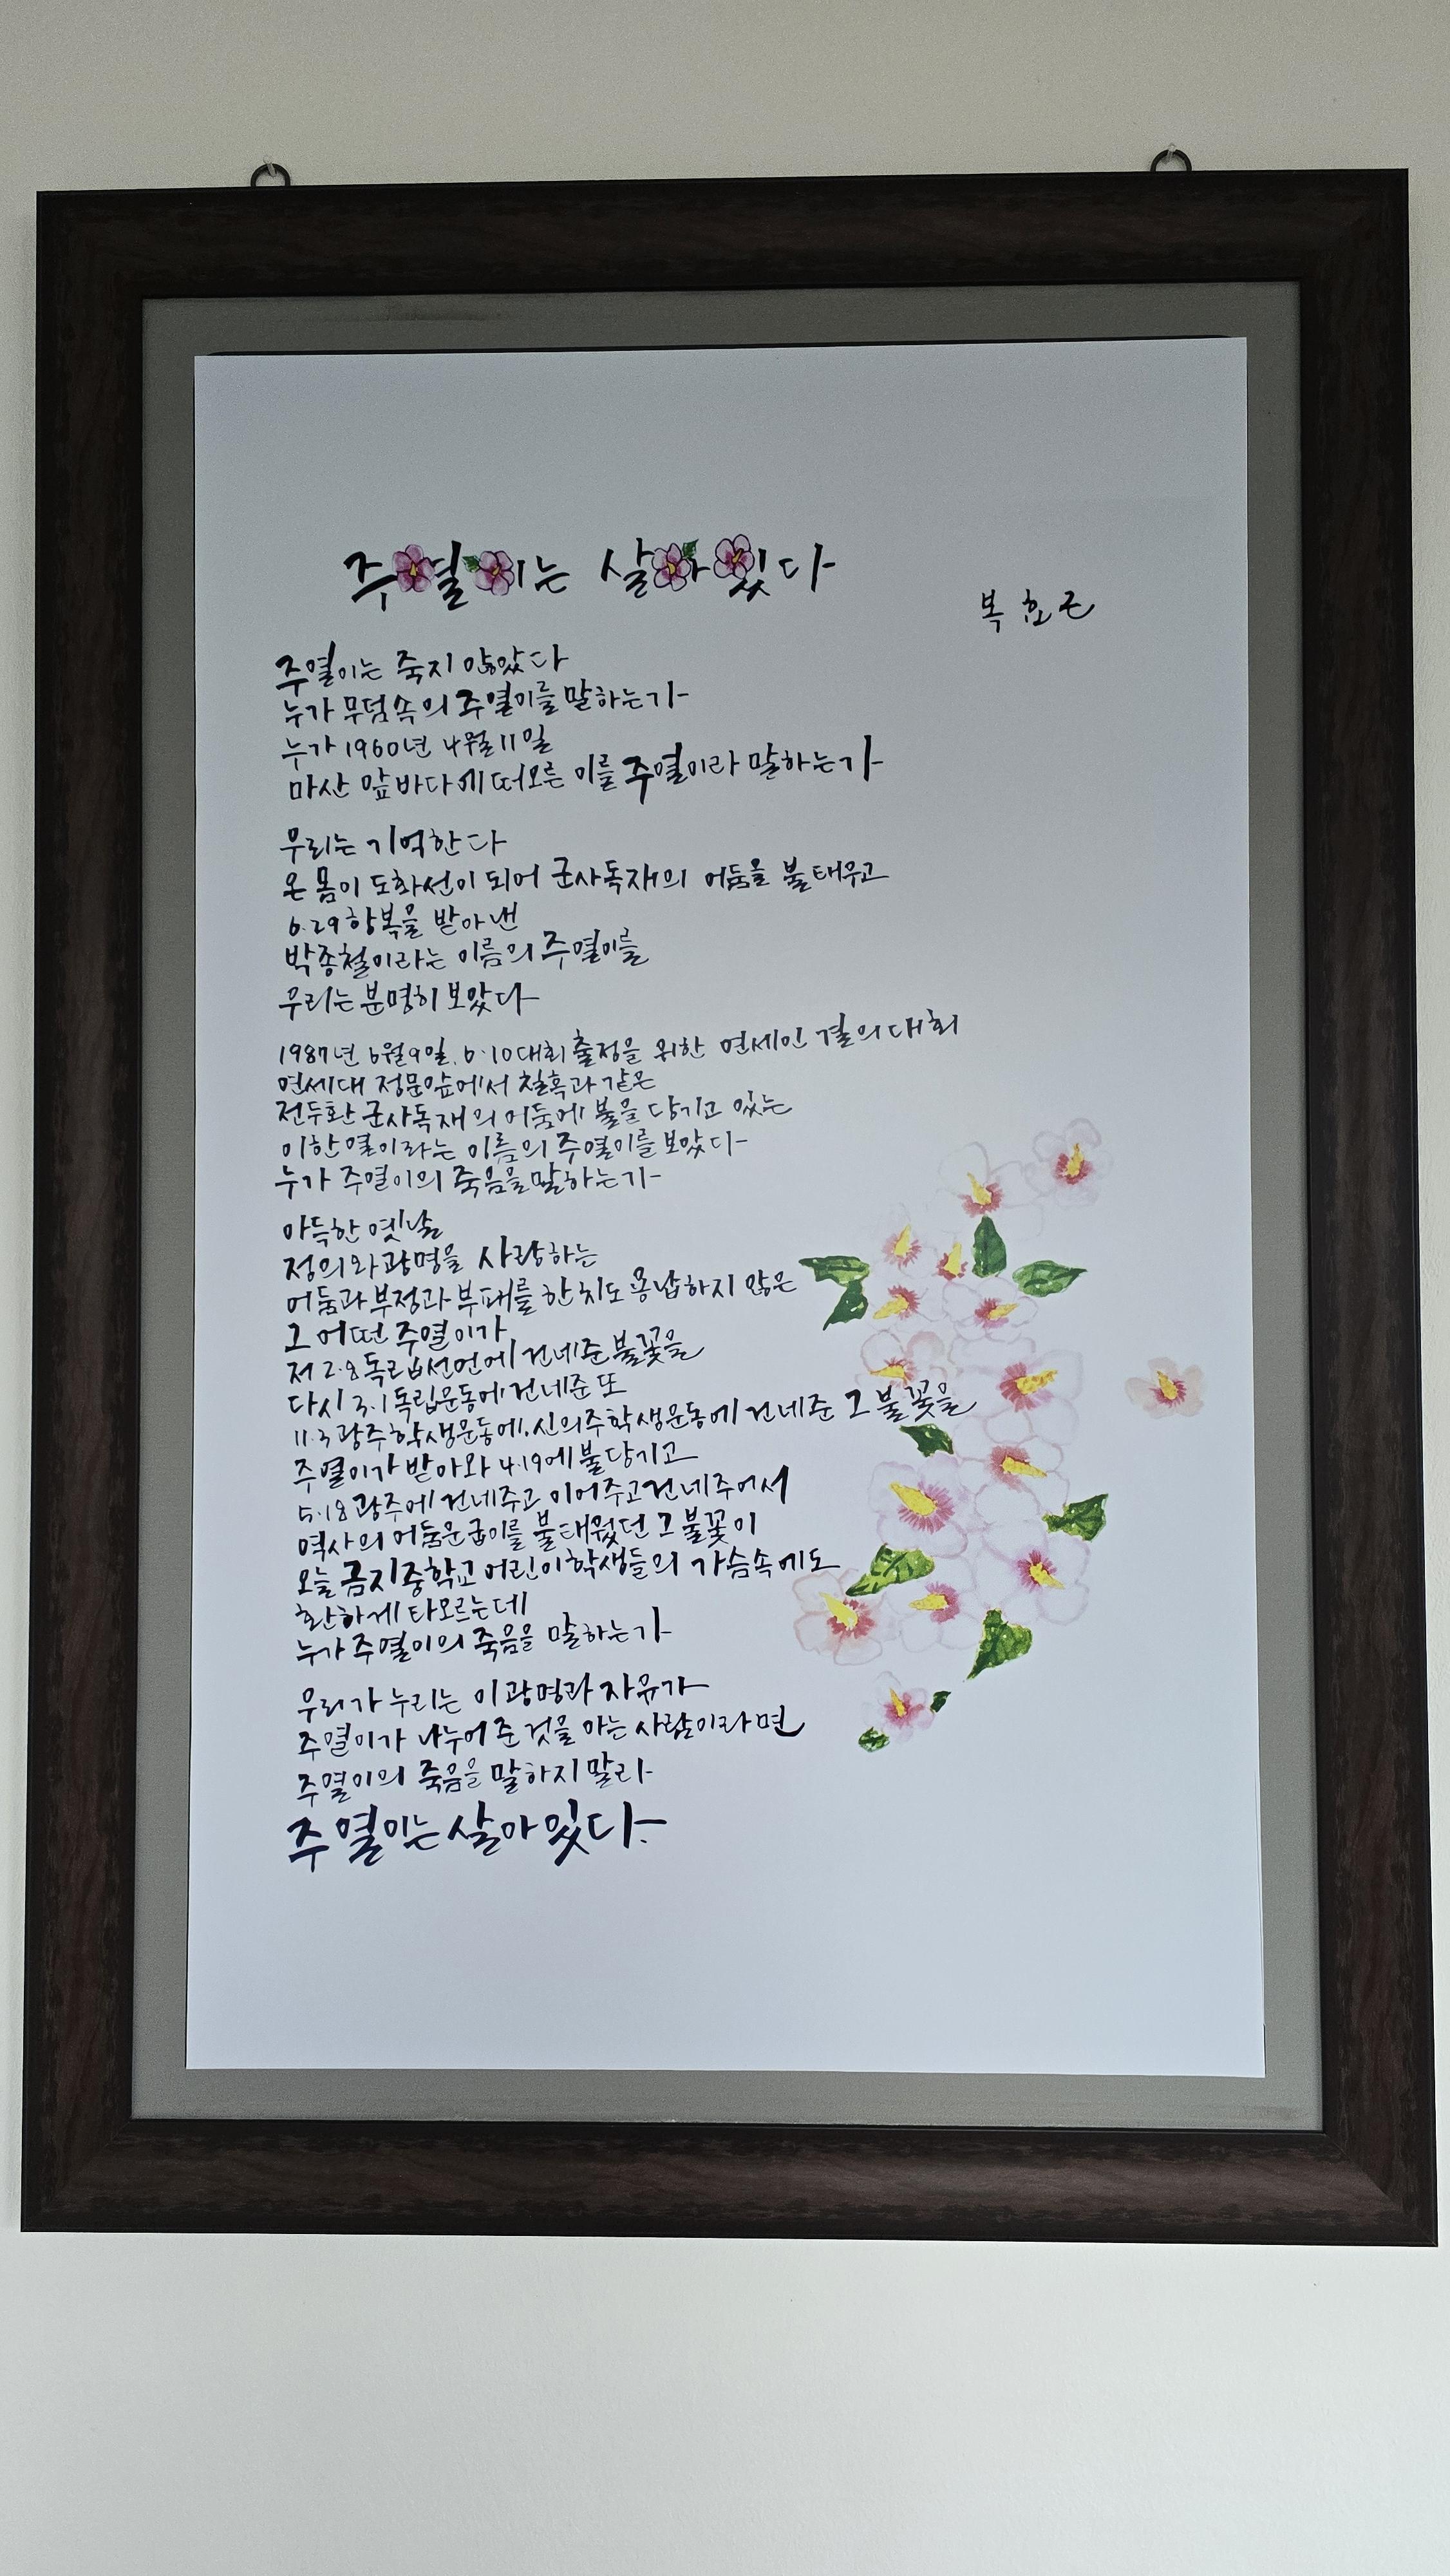 주열이는 살아있다
복효근
주열이는 죽지 않았다
누가 무덤속의 주열이를 말하는가
누가 1960년 4월 11일
마산 앞바다에 떠오른 이를 주열이라 말하는가
우리는 기억한다
온 몸이 도화선이 되어 군사독재의 어둠을 불태우고
6.29 항복을 받아낸
박종철이라는 이름의 주열이를
우리는 분명히 보았다
1987년 6월 9일, 6·10대회 출정을 위한 연세인 결의대회
연세대 정문앞에서 칠흑과 같은
전두환 군사독재의 어둠에 불을 당기고 있는
이한열이라는 이름의 주열이를 보았다
누가 주열이의 죽음을 말하는가
아득한 옛날
정의와 광명을 사랑하는
어둠과 부정과 부패를 한치도 용납하지 않은
그 어떤 주열이가
저 2·8 독립선언에 건네준 불꽃을
다시 3.1 독립운동에 건네준 또
11.3 광주학생운동에, 신의주학생운동에 건네준 그 불꽃을
주열이가 받아와 4.19에 불당기고
5.18 광주에 건네주고 이어주고 건네주어서
역사의 어둠운굽이를 불태웠던 그 불꽃이
오늘 금지중학교 어린이학생들의 가슴속에도
환하게 타오르는데
누가 주열이의 죽음을 말하는가
우리가 누리는 이 광명과 자유가
주열이가 나누어 준 것을 아는 사람이라면
주열이의 죽음을 말하지 말라
주열이는 살아있다.